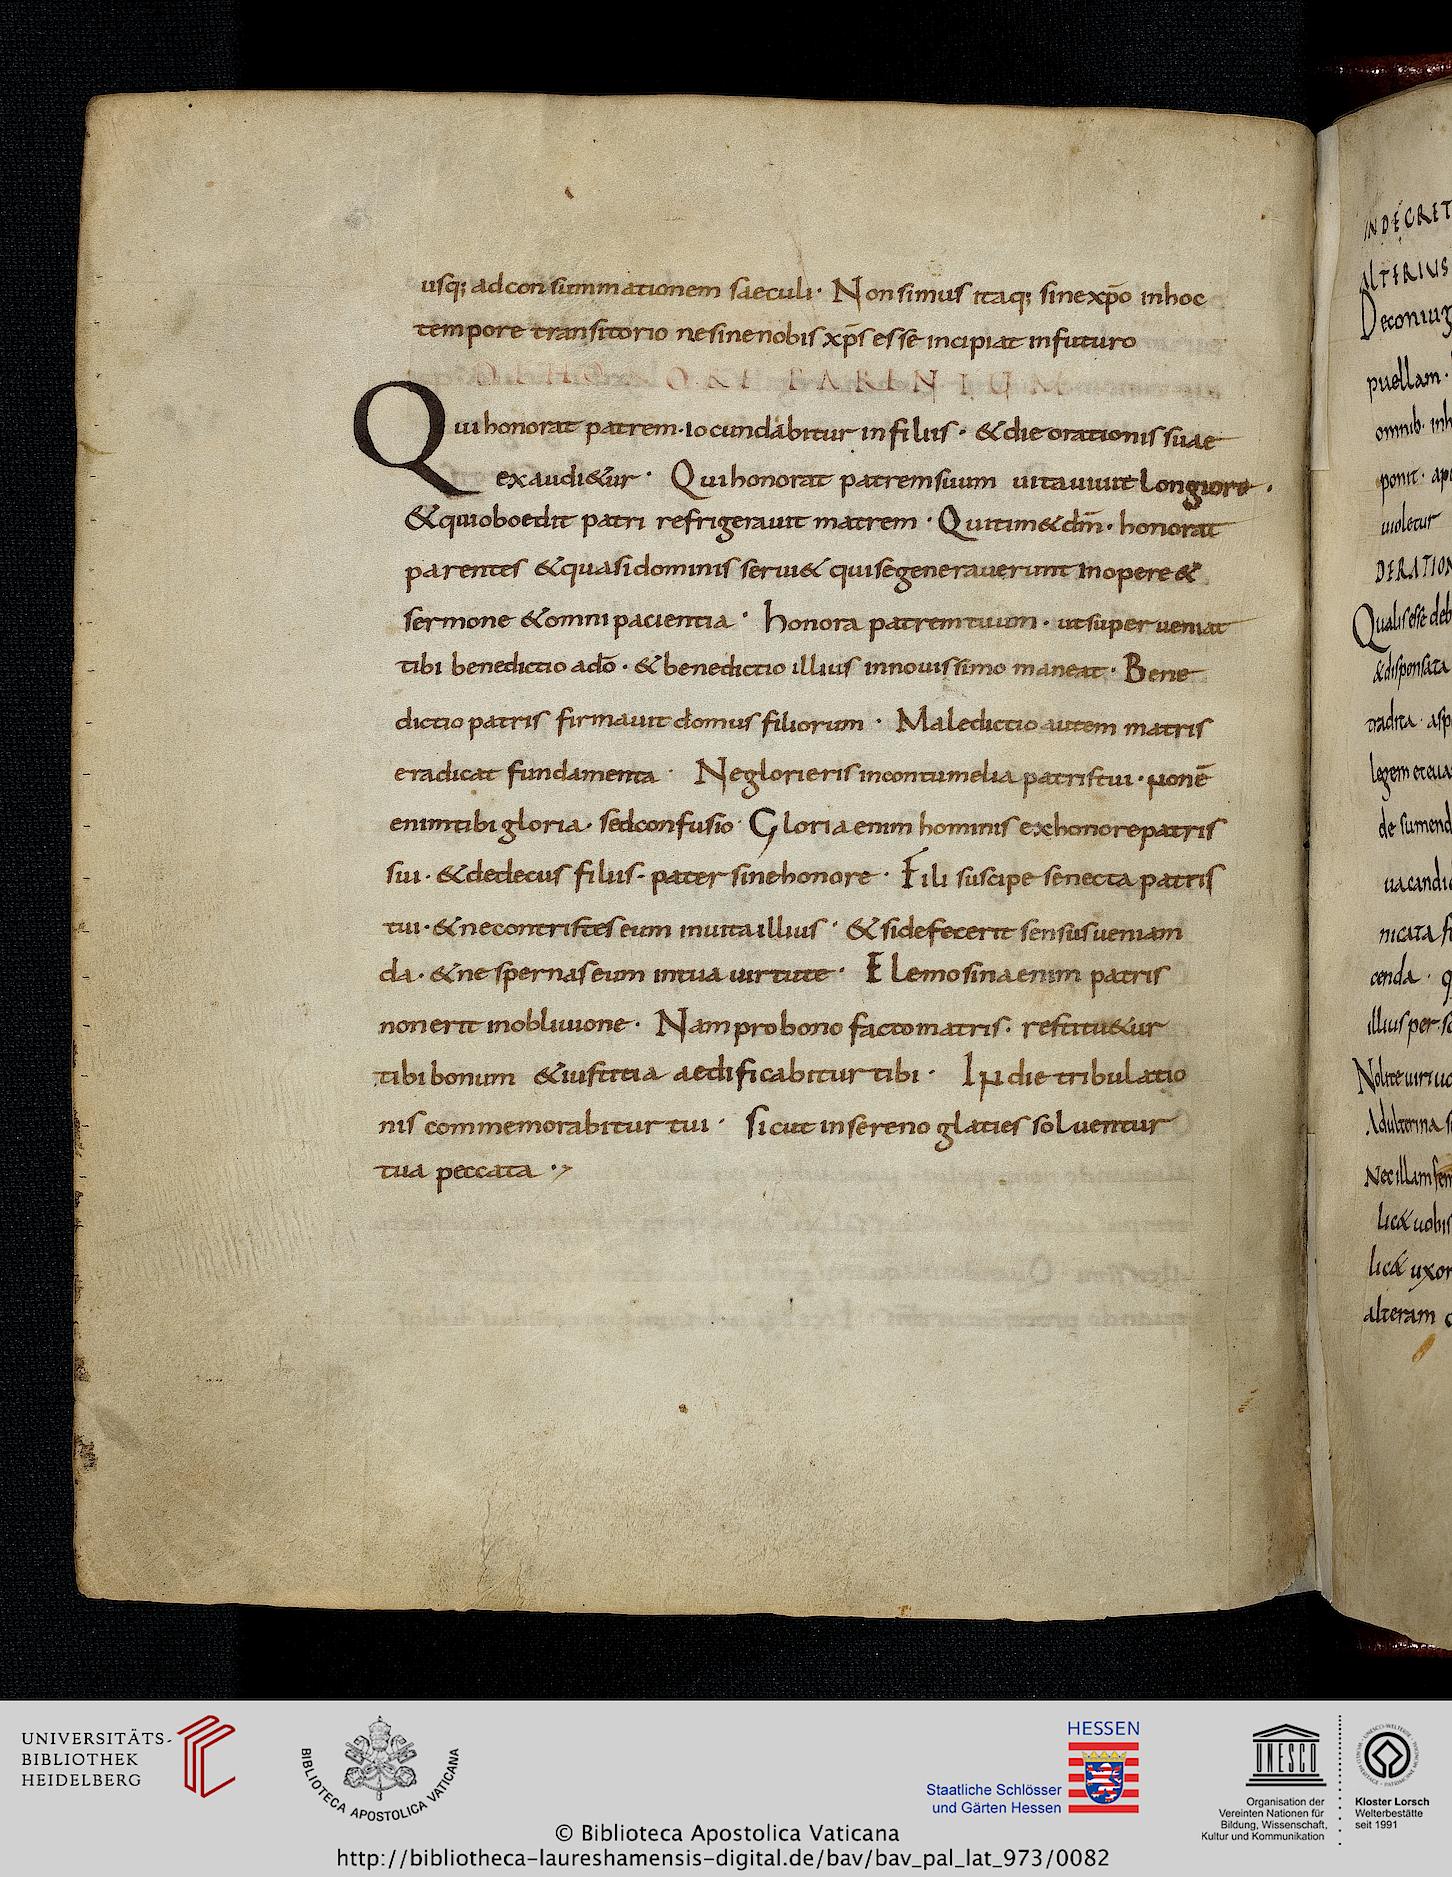 usq; ad consummationem saeculi· Non simus itaq; sine xp̄o in hoc
tempore transitorio ne sine nobis xp̄s esse incipiat in futuro
DE HONORE PARENTUM
Qui honorat patrem· iocundabitur in filiis· & die orationis suae
exaudi&ur· Qui honorat patrem suum uita uiuit longiore·
& qui oboedit patri refrigerauit matrem· Qui tim& dm̄· honorat
parentes & quasi dominis serui& qui se generauerunt in opere &
sermone & omni pacientia· honora patrem tuum· ut superueniat
tibi benedictio a do̅· & benedictio illius in nouissimo maneat· Bene
dictio patris firmauit domus filiorum· Maledictio autem matris
eradicat fundamenta· Ne glorieris in contumelia patris tui· non ē
enim tibi gloria· sed confusio· Gloria enim hominis ex honore patris
sui· & dedecus filiis· pater sine honore· Fili suscipe senecta patris
tui· & ne contristes eum in uita illius· & si defecerit sensus ueniam
da· & ne spernas eum in tua uirtute· Elemosina enim patris
non erit in obliuione· Nam pro bono facto matris· restitu&ur
tibi bonum & iustitia aedificabitur tibi· In die tribulatio
nis commemorabitur tui· sicut in sereno glaties soluentur
tua peccata·
INDECRET
ALTERIUS
Deconiug
puellam·
omnib· inh
ponit· ap
uioletur
DERATION
Qualis esse deb
& dispensata
tradita· asp
legem et eua
de sumend
ua candi
nicata
cenda·
illius per
Nolite
Adulterina
Nec illam
lic& uobis
lic& uxor
alteram
UNIVERSITÄTS-
BIBLIOTHEK
HEIDELBERG
BIBLIOTECA APOSTOLICA VATICANA
HESSEN
Staatliche Schlösser
und Gärten Hessen
UNESCO
Organisation der
Vereinten Nationen für
Bildung, Wissenschaft,
Kultur und Kommunikation
Kloster Lorsch
Welterbestätte
seit 1991
© Biblioteca Apostolica Vaticana
http://bibliotheca-laureshamensis-digital.de/bav/bav_pal_lat_973/0082